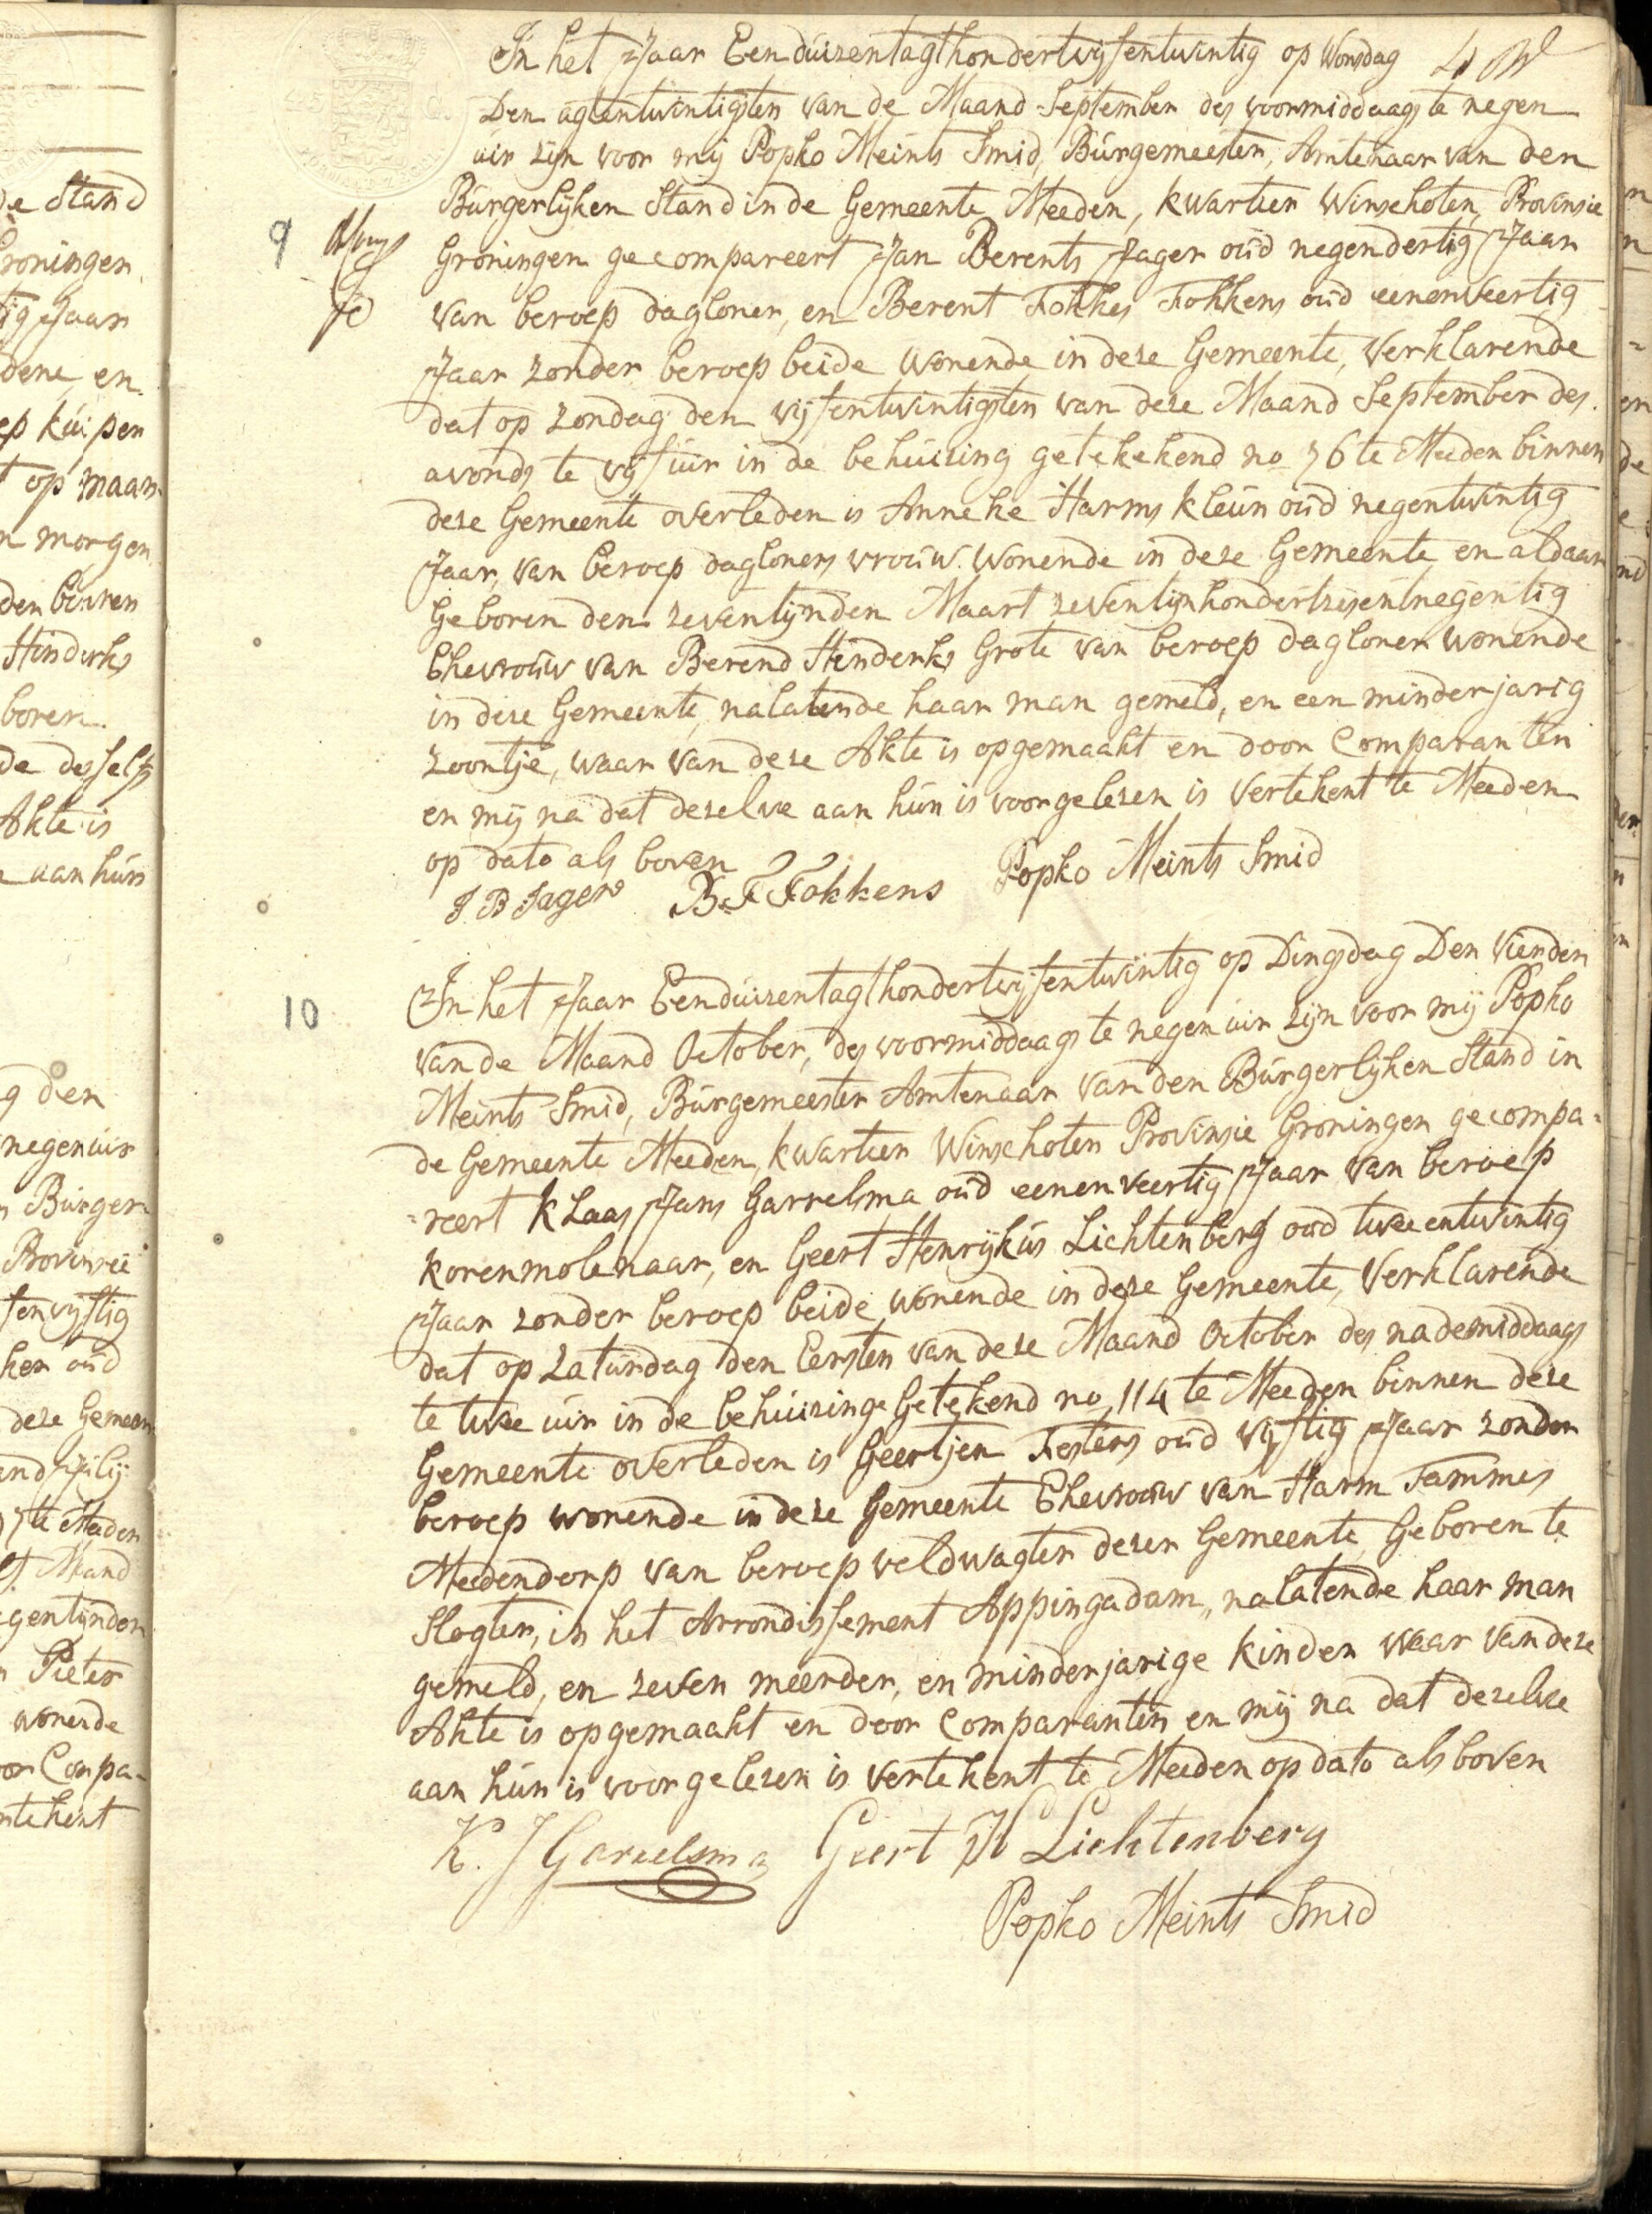 In het Jaar Een duizentagthondertvijfentwintig op Wonsdag 4
Den agtentwintigsten van de Maand September des voormiddaags te negen
uir zijn voor mij Popko Meints Smid, Burgemeester, Amtenaar van den
Burgerlijken Stand in de Gemeente Meeden, kwartier Winschoten, Provinsie
9
Groningen gecompareert Jan Berents Jager oud negendertig Jaar
van beroep dagloner, en Berent Fokkes Fokkens oud eenenveertig
Jaar zonder beroep beide wonende in deze Gemeente, Verklarende
dat op zondag den vijfentwintigsten van deze Maand September des
avonds te vijf uir in de behuizing getekekend no 76 te Meeden binnen
deze Gemeente overleden is Anneke Harms kleun oud negentwintig
Jaar, van beroep dagloners vrouw. wonende in deze Gemeente en aldaar
geboren den zeventijnden Maart zeventijnhondertzesentnegentig
Ehevrouw van Berend Henderks Grote van beroep dagloner wonende
in deze Gemeente, nalatende haar man gemeld, en een minderjarig
zoontje, waar van deze Akte is opgemaakt en door Comparanten
en mij na dat dezelve aan hun is voorgelezen is Vertekent te Meeden
op dato als boven
J B Jager B. F Fokkens Popko Meints Smid
10
In het Jaar Eenduizentagthondertvijfentwintig op Dingsdag Den Vierden
van de Maand October, des voormiddaags te negen uir zijn voor mij Popko
Meints Smid, Burgemeester Amtenaar van den Burgerlijken Stand in
de Gemeente Meeden, kwartier Winschoten Provinsie Groningen gecompa=
=reert Klaas Jans Garrelsma oud eenenveertig Jaar van beroep
korenmolenaar, en Geert Henrijkus Lichtenberg oud tweeentwintig
Jaar zonder beroep beide wonende in deze Gemeente, Verklarende
dat op Zaturdag den Eersten van deze Maand October des nademiddaags
te twee uir in de behuizinge Getekend no 114 te Meeden binnen deze
Gemeente overleden is Geertjen Festers oud vijftig Jaar zonder
beroep wonende in deze Gemeente Ehevrouw van Harm Tammes
Meedendorp van beroep veldwagter dezer Gemeente, Geboren te
Slogter, in het Arrondissement Appingadam, nalatende haar man
gemeld, en zeven meerder, en minderjarige kinder waar van deze
Akte is opgemaakt en door Comparanten en mij na dat dezelve
aan hun is voorgelezen is Vertekent te Meeden op dato als boven
K. J Garrelsma Geert H Lichtenberg
Popko Meints Smid